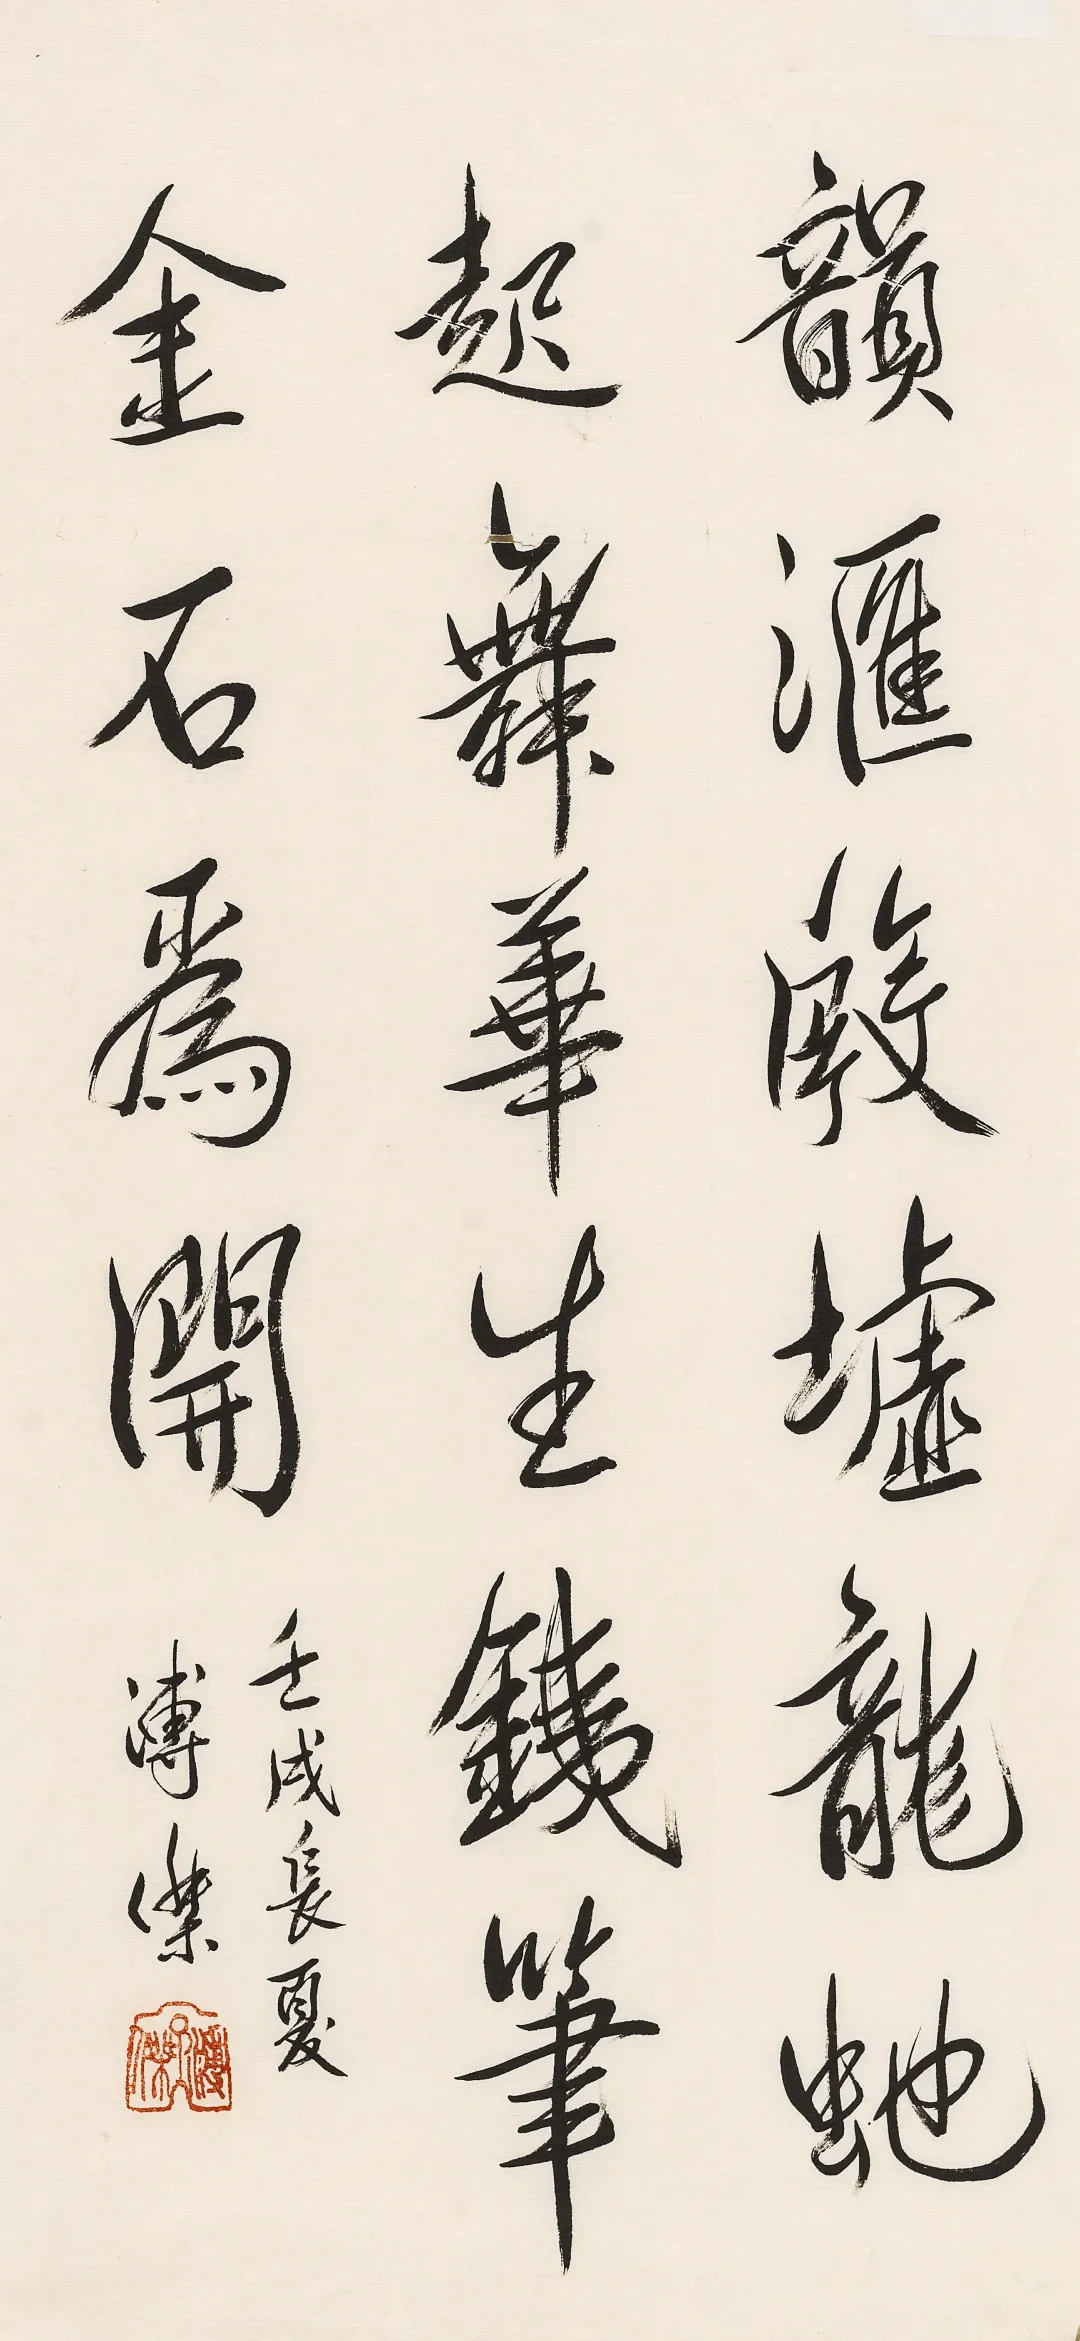 韻滙殷墟龍虵
起舞華生銕筆
金石爲開
壬戌長夏
溥傑
溥傑